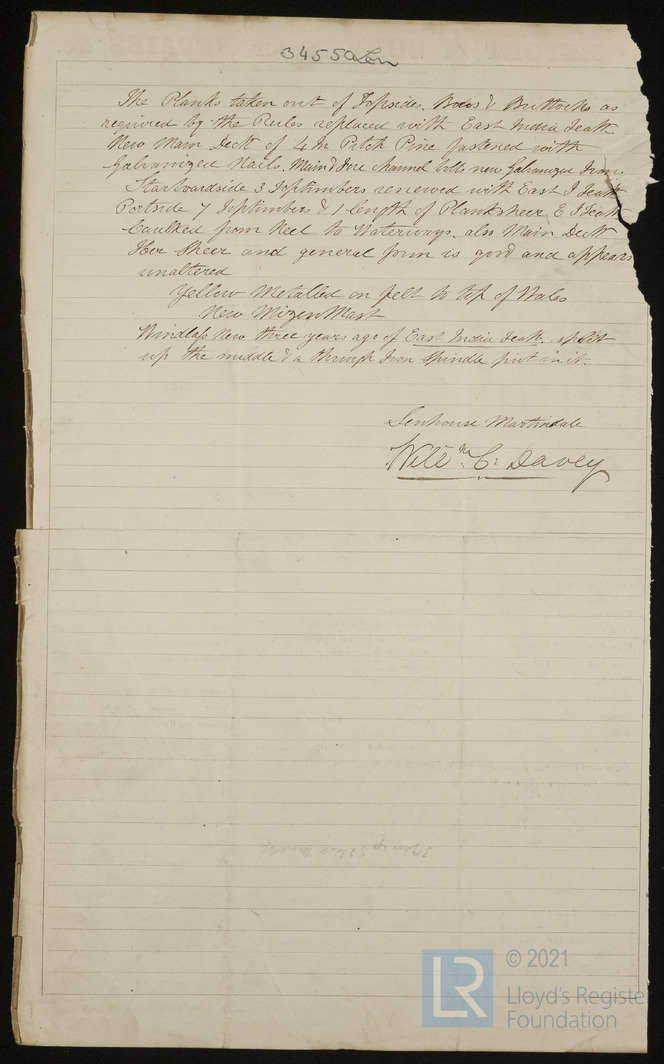 34559 Lon
The Planks taken out of Topsides. Bows & Buttocks as
required by the Rules replaced with East India Teak.
New Main Deck of 4 in Pitch Pine fastened with
Galvanized Nails. Main & Fore channel bolts new Galvanized Iron
Starboardside 3 Toptimbers renewed with East I Teak
Portside 7 Toptimbers & 1 length of Planksheer E I Teak
Caulked from Keel to Waterways. also Main Deck
Her Sheer and general form is good and appears
unaltered
Yellow Metalled on felt to top of Wales
New Mizen Mast
Windlass New three years ago of East India Teak. split
up the middle & a through Iron Spindle put in it.
Senhouse Martindale
Will^m. C: Davey
LR
© 2021
Lloyd's Register
Foundation